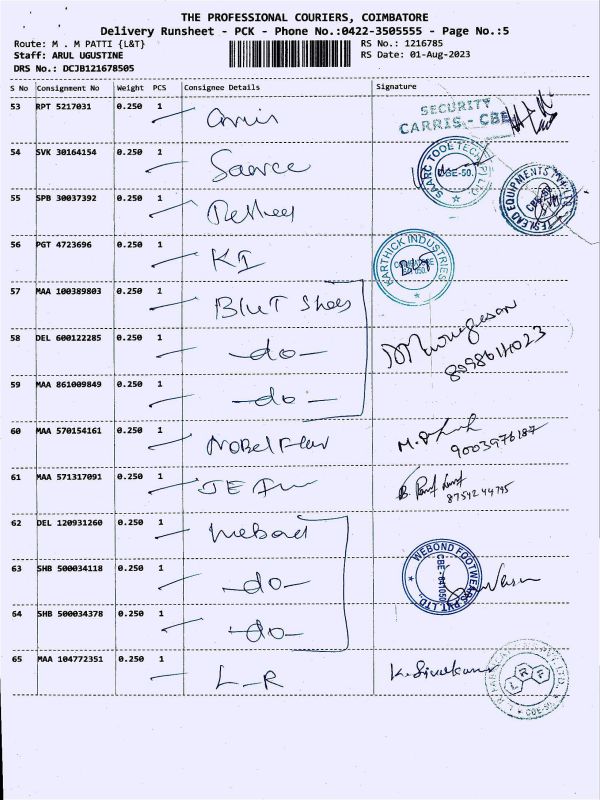 THE PROFESSIONAL COURIERS, COIMBATORE
Delivery Runsheet - PCK - Phone No.:0422-3505555 - Page No.:5
Route: M . M PATTI {L&T} RS No.: 1216785
Staff: ARUL UGUSTINE RS Date: 01-Aug-2023
DRS No.: DCJB121678505
S No Consignment No Weight PCS Consignee Details Signature
53 RPT 5217031 0.250 1
SECURITY
CARRIS - CBE
54 SVK 30164154 0.250 1 Saarce
SAARC TOOL TECH (P) LTD CBE-50.
55 SPB 30037392 0.250 1
TESLEAD EQUIPMENTS PVT. LTD
56 PGT 4723696 0.250 1 KI
KARTHICK INDUSTRIES
57 MAA 100389803 0.250 1 BLUT Shoes
58 DEL 600122285 0.250 1 -do-
Murugesan
59 MAA 861009849 0.250 1 -do-
60 MAA 570154161 0.250 1 NOBel Flex M.
9003976187
61 MAA 571317091 0.250 1
8754244795
62 DEL 120931260 0.250 1 Webond
63 SHB 500034118 0.250 1 -do-
WEBOND FOOTWEARS PVT. LTD.
64 SHB 500034378 0.250 1 -do-
65 MAA 104772351 0.250 1 L-R K. Sivakumar
LRF